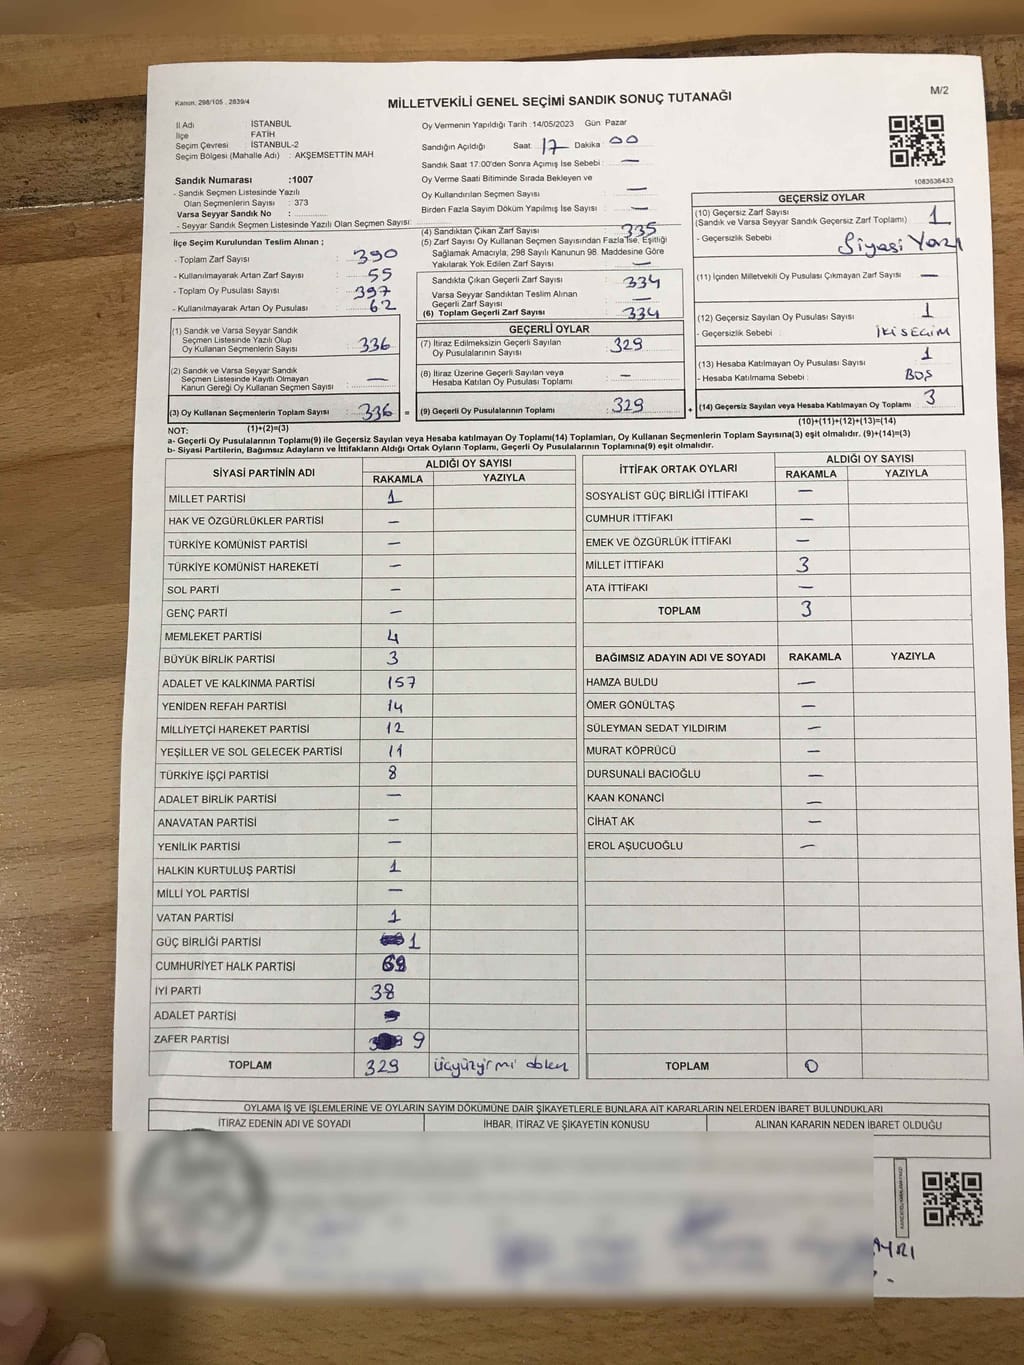 Kanun, 298/105 , 2839/4
MİLLETVEKİLİ GENEL SEÇİMİ SANDIK SONUÇ TUTANAĞI
M/2
İl Adı : İSTANBUL
İlçe : FATİH
Seçim Çevresi : İSTANBUL-2
Seçim Bölgesi (Mahalle Adı) : AKŞEMSETTİN MAH
Sandık Numarası :1007
- Sandık Seçmen Listesinde Yazılı
Olan Seçmenlerin Sayısı : 373
Varsa Seyyar Sandık No :
- Seyyar Sandık Seçmen Listesinde Yazılı Olan Seçmen Sayısı:
Oy Vermenin Yapıldığı Tarih :14/05/2023 Gün: Pazar
Sandığın Açıldığı Saat 17 Dakika 00
Sandık Saat 17:00'den Sonra Açımış İse Sebebi : —
Oy Verme Saati Bitiminde Sırada Bekleyen ve
Oy Kullandırılan Seçmen Sayısı —
Birden Fazla Sayım Döküm Yapılmış İse Sayısı : —
1083636433
İlçe Seçim Kurulundan Teslim Alınan ;
- Toplam Zarf Sayısı : 390
- Kullanılmayarak Artan Zarf Sayısı : 55
- Toplam Oy Pusulası Sayısı : 397
- Kullanılmayarak Artan Oy Pusulası : 62
(1) Sandık ve Varsa Seyyar Sandık
Seçmen Listesinde Yazılı Olup
Oy Kullanan Seçmenlerin Sayısı : 336
(2) Sandık ve Varsa Seyyar Sandık
Seçmen Listesinde Kayıtlı Olmayan
Kanun Gereği Oy Kullanan Seçmen Sayısı : —
(3) Oy Kullanan Seçmenlerin Toplam Sayısı : 336 =
(1)+(2)=(3)
(4) Sandıktan Çıkan Zarf Sayısı : 335
(5) Zarf Sayısı Oy Kullanan Seçmen Sayısından Fazla İse, Eşitliği
Sağlamak Amacıyla, 298 Sayılı Kanunun 98. Maddesine Göre
Yakılarak Yok Edilen Zarf Sayısı : —
Sandıkta Çıkan Geçerli Zarf Sayısı : 334
Varsa Seyyar Sandıktan Teslim Alınan
Geçerli Zarf Sayısı : —
(6) Toplam Geçerli Zarf Sayısı : 334
GEÇERLİ OYLAR
(7) İtiraz Edilmeksizin Geçerli Sayılan
Oy Pusulalarının Sayısı : 329
(8) İtiraz Üzerine Geçerli Sayılan veya
Hesaba Katılan Oy Pusulası Toplamı : —
(9) Geçerli Oy Pusulalarının Toplamı : 329 +
GEÇERSİZ OYLAR
(10) Geçersiz Zarf Sayısı
(Sandık ve Varsa Seyyar Sandık Geçersiz Zarf Toplamı) : 1
- Geçersizlik Sebebi : Siyasi Yazı
(11) İçinden Milletvekili Oy Pusulası Çıkmayan Zarf Sayısı : —
(12) Geçersiz Sayılan Oy Pusulası Sayısı : 1
- Geçersizlik Sebebi : İKİ SEÇİM
(13) Hesaba Katılmayan Oy Pusulası Sayısı : 1
- Hesaba Katılmama Sebebi : BOŞ
(14) Geçersiz Sayılan veya Hesaba Katılmayan Oy Toplamı : 3
(10)+(11)+(12)+(13)=(14)
NOT:
a- Geçerli Oy Pusulalarının Toplamı(9) ile Geçersiz Sayılan veya Hesaba Katılmayan Oy Toplamı(14) Toplamları, Oy Kullanan Seçmenlerin Toplam Sayısına(3) eşit olmalıdır. (9)+(14)=(3)
b- Siyasi Partilerin, Bağımsız Adayların ve İttifakların Aldığı Ortak Oyların Toplamı, Geçerli Oy Pusulalarının Toplamına(9) eşit olmalıdır.
SİYASİ PARTİNİN ADI ALDIĞI OY SAYISI
RAKAMLA YAZIYLA
MİLLET PARTİSİ 1
HAK VE ÖZGÜRLÜKLER PARTİSİ —
TÜRKİYE KOMÜNİST PARTİSİ —
TÜRKİYE KOMÜNİST HAREKETİ —
SOL PARTİ —
GENÇ PARTİ —
MEMLEKET PARTİSİ 4
BÜYÜK BİRLİK PARTİSİ 3
ADALET VE KALKINMA PARTİSİ 157
YENİDEN REFAH PARTİSİ 14
MİLLİYETÇİ HAREKET PARTİSİ 12
YEŞİLLER VE SOL GELECEK PARTİSİ 11
TÜRKİYE İŞÇİ PARTİSİ 8
ADALET BİRLİK PARTİSİ —
ANAVATAN PARTİSİ —
YENİLİK PARTİSİ —
HALKIN KURTULUŞ PARTİSİ 1
MİLLİ YOL PARTİSİ —
VATAN PARTİSİ 1
GÜÇ BİRLİĞİ PARTİSİ 1
CUMHURİYET HALK PARTİSİ 69
İYİ PARTİ 38
ADALET PARTİSİ
ZAFER PARTİSİ 9
TOPLAM 329 Üçyüzyirmi dokuz
İTTİFAK ORTAK OYLARI ALDIĞI OY SAYISI
RAKAMLA YAZIYLA
SOSYALİST GÜÇ BİRLİĞİ İTTİFAKI —
CUMHUR İTTİFAKI —
EMEK VE ÖZGÜRLÜK İTTİFAKI —
MİLLET İTTİFAKI 3
ATA İTTİFAKI —
TOPLAM 3
BAĞIMSIZ ADAYIN ADI VE SOYADI RAKAMLA YAZIYLA
HAMZA BULDU —
ÖMER GÖNÜLTAŞ —
SÜLEYMAN SEDAT YILDIRIM —
MURAT KÖPRÜCÜ —
DURSUNALİ BACIOĞLU —
KAAN KONANCİ —
CİHAT AK —
EROL AŞUCUOĞLU —
TOPLAM 0
OYLAMA İŞ VE İŞLEMLERİNE VE OYLARIN SAYIM DÖKÜMÜNE DAİR ŞİKAYETLERLE BUNLARA AİT KARARLARIN NELERDEN İBARET BULUNDUKLARI
İTİRAZ EDENİN ADI VE SOYADI İHBAR, İTİRAZ VE ŞİKAYETİN KONUSU ALINAN KARARIN NEDEN İBARET OLDUĞU